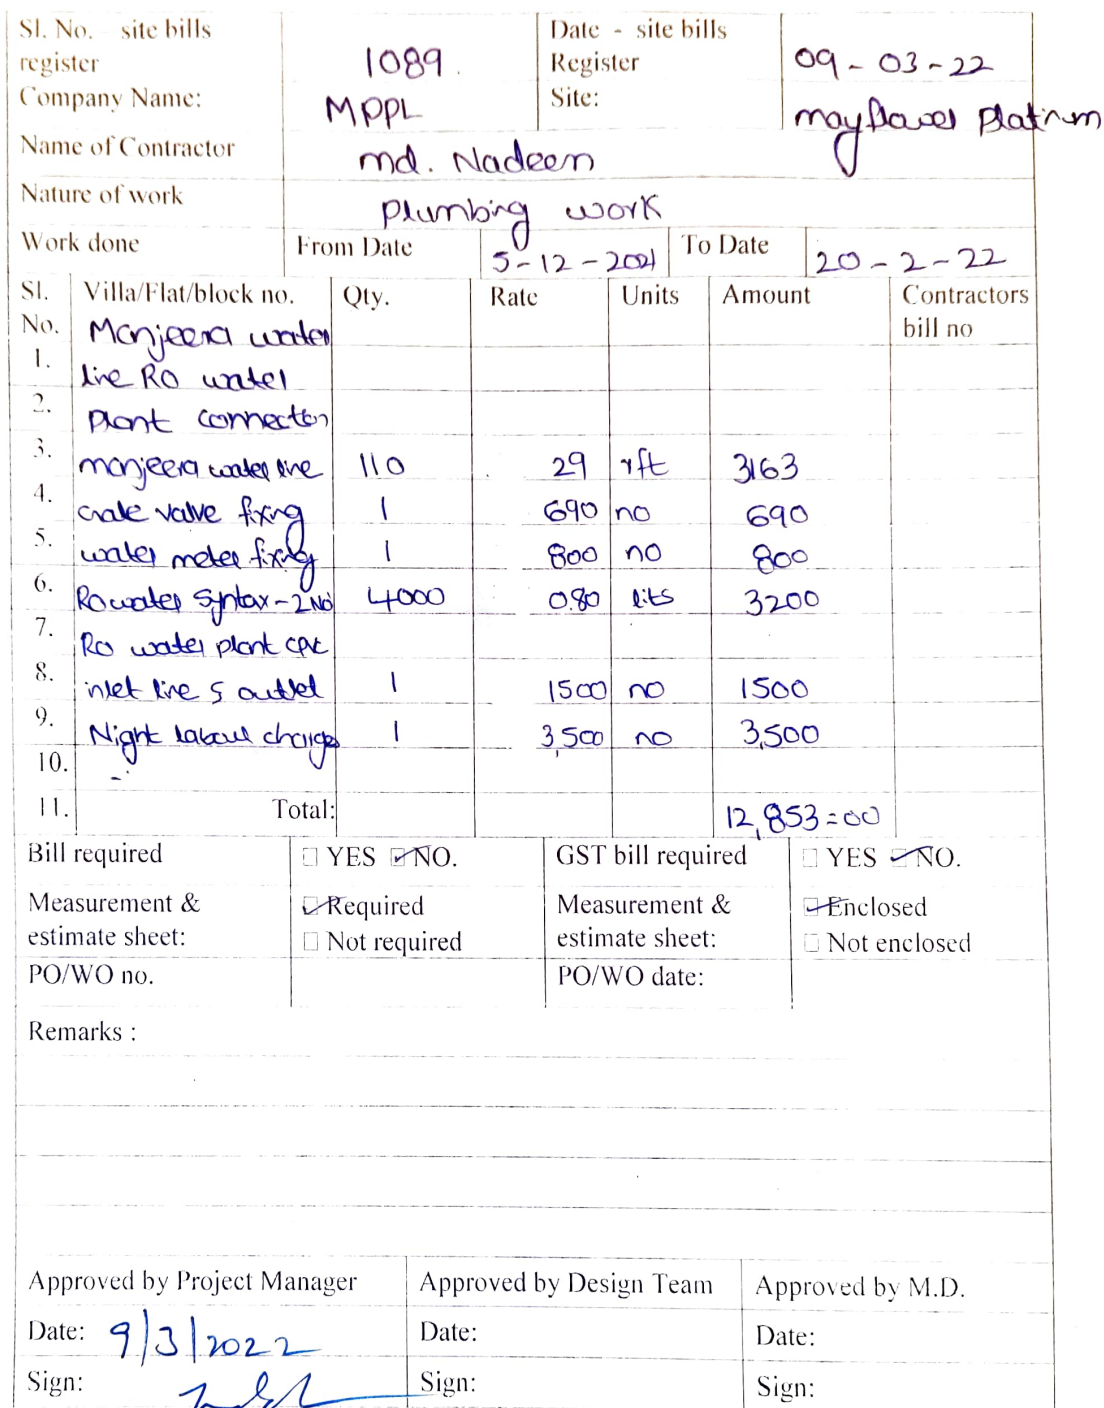 Sl. No. site bills register 1089. Date - site bills Register 09-03-22
Company Name: MPPL Site: mayflower Platinum
Name of Contractor md. Nadeem
Nature of work Plumbing work
Work done From Date 5-12-2021 To Date 20-2-22
Sl. No. Villa/Flat/block no. Qty. Rate Units Amount Contractors bill no
Manjeera water
1. line RO water
2. Plant connection
3. manjeera water line 110 29 rft 3163
4. Gate valve fixing 1 690 no 690
5. water meter fixing 1 800 no 800
6. Ro water Syntax-2No 4000 0.80 lits 3200
7. Ro water plant cpvc
8. inlet line & outlet 1 1500 no 1500
9. Night labour charges 1 3,500 no 3,500
10.
11. Total: 12,853=00
Bill required YES NO. GST bill required YES NO.
Measurement & estimate sheet: Required Not required Measurement & estimate sheet: Enclosed Not enclosed
PO/WO no. PO/WO date:
Remarks :
Approved by Project Manager Approved by Design Team Approved by M.D.
Date: 9/3/2022 Date: Date:
Sign: Sign: Sign: